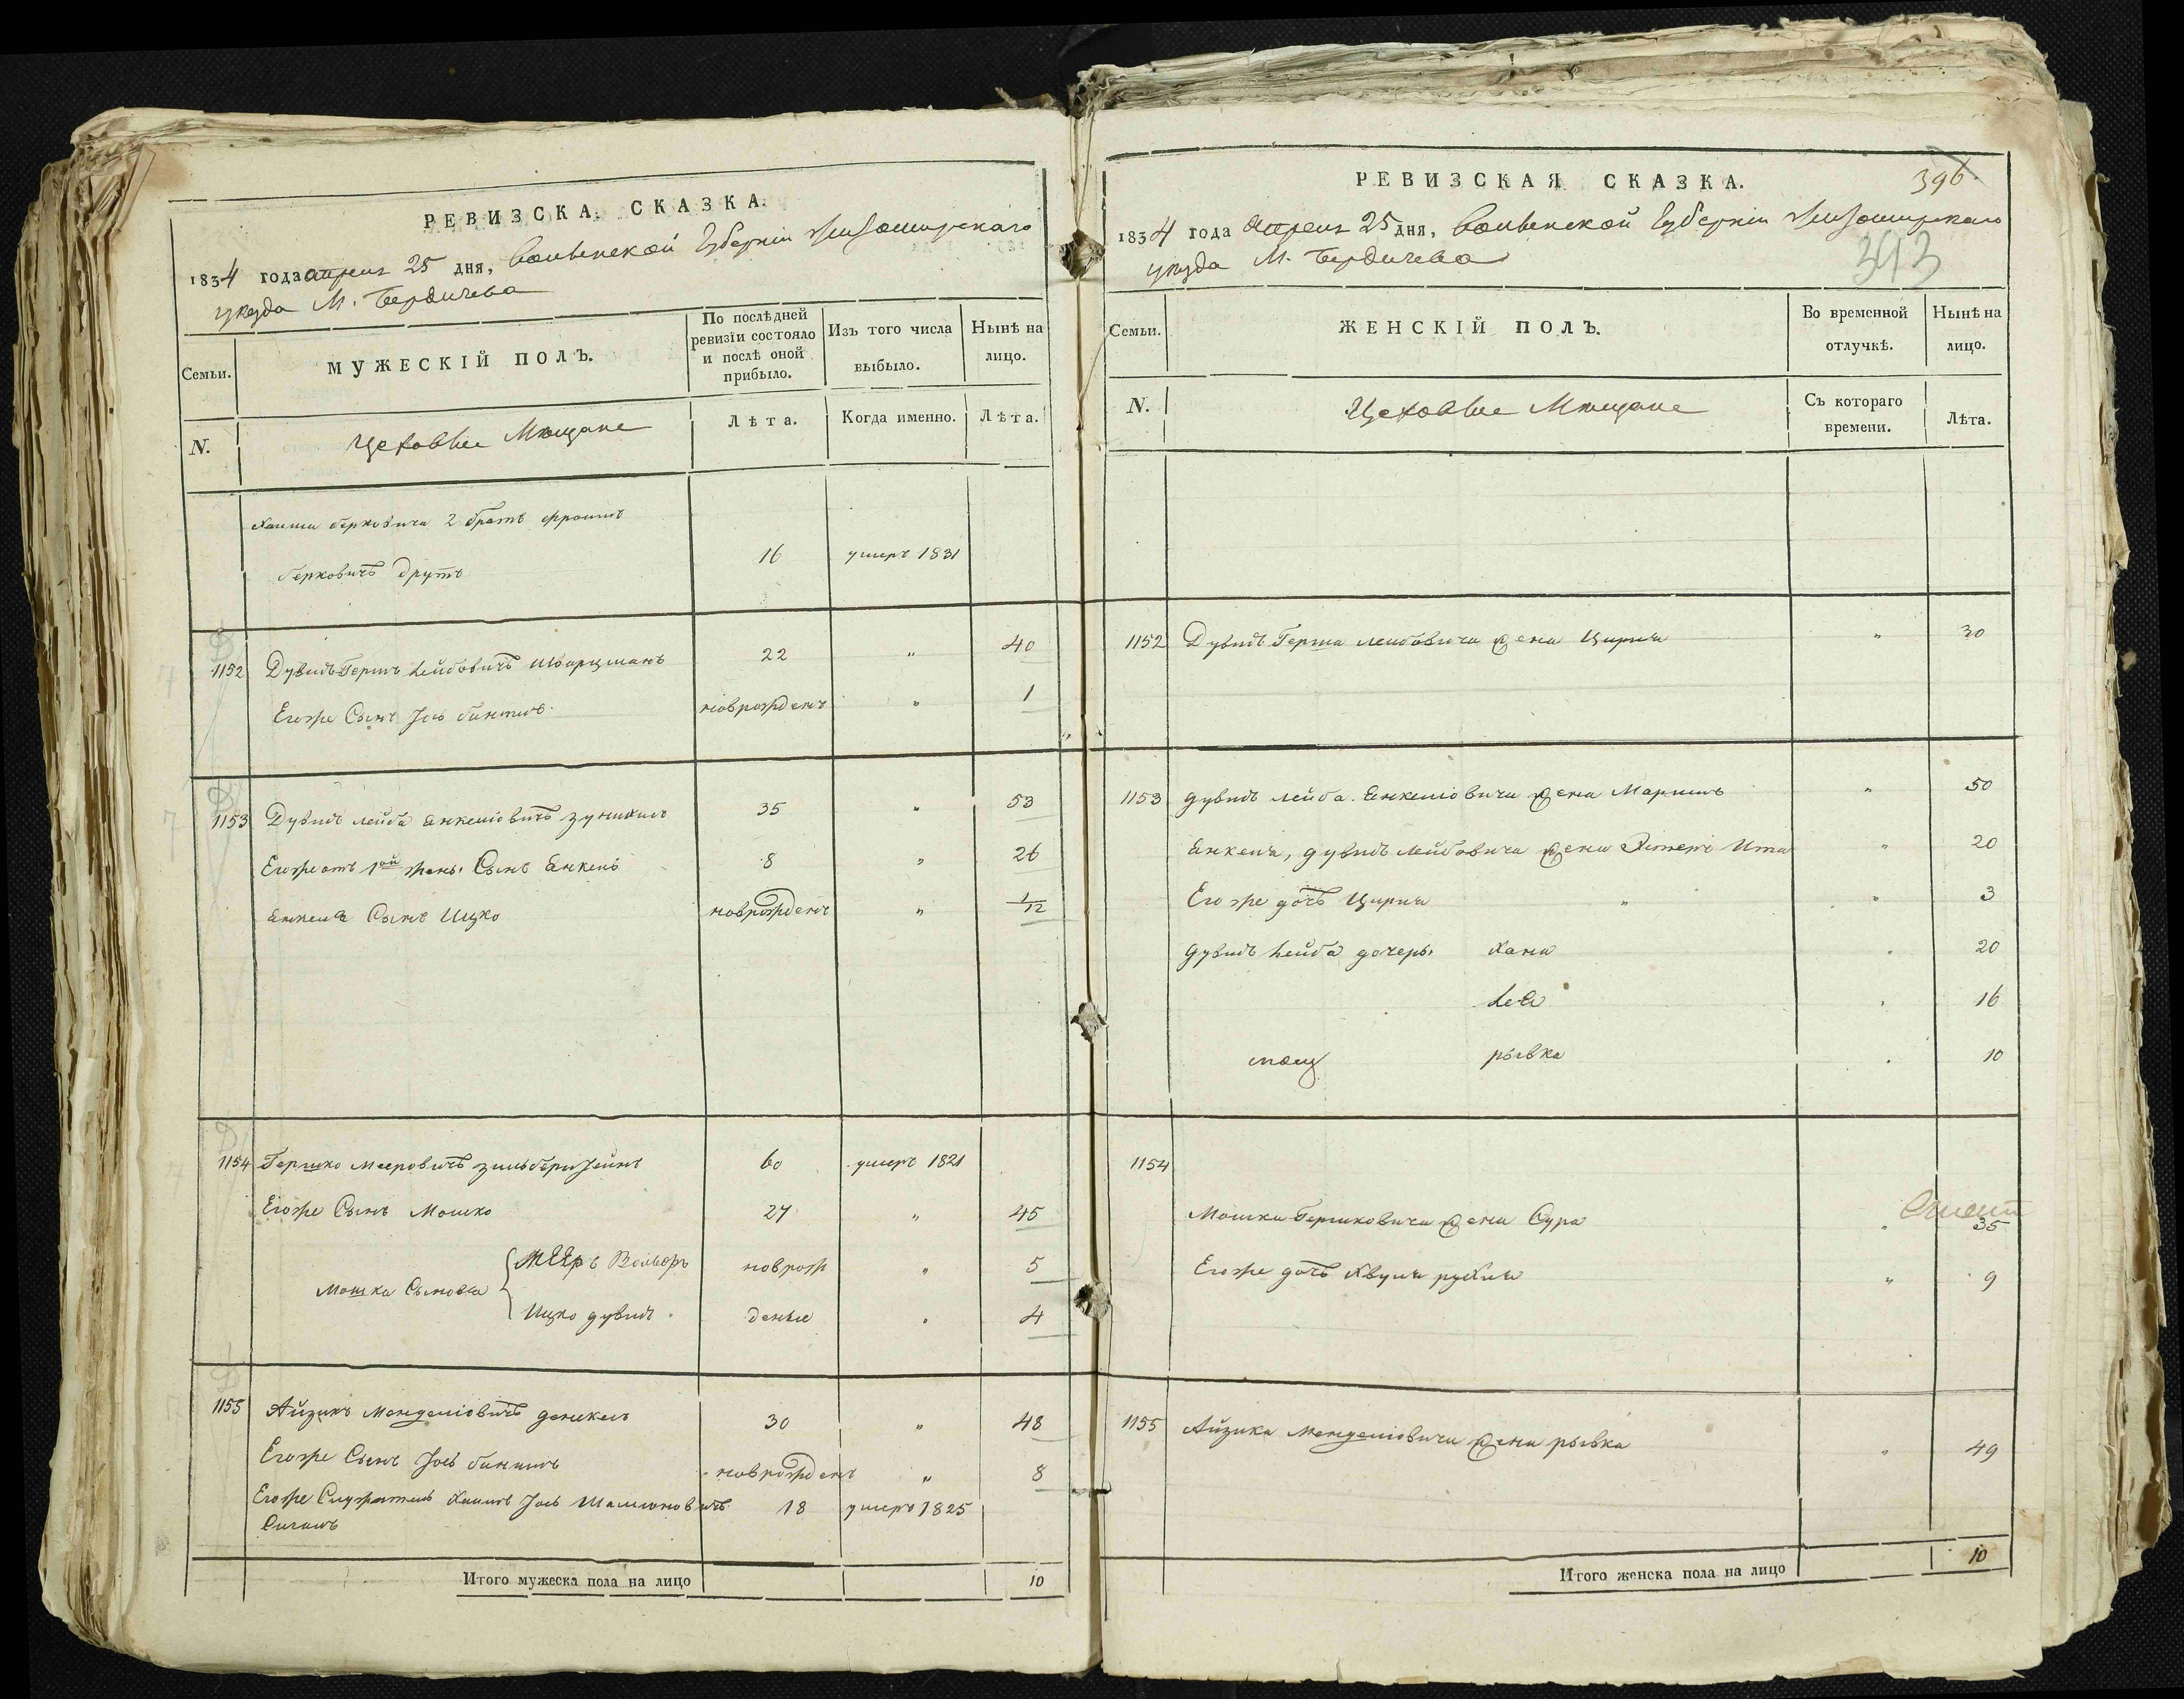 РЕВИЗСКА. СКАЗКА.
1834 года апреля 25 дня, Волынской Губерніи Житомирскаго
уѣзда М. Бердичева
Семьи.
МУЖЕСКІЙ ПОЛЪ.
По послѣдней ревизіи состояло и послѣ оной прибыло.
Изъ того числа выбыло.
Нынѣ на лицо.
N.
Цеховые Мещане
Лѣта.
Когда именно.
Лѣта.
Хаима берковича 2 братъ Фроимъ
берковичъ друтъ 16 умеръ 1831
1152 Дувидъ Гершъ Лейбовичъ Шварцманъ 22 " 40
Егоже Сынъ Іось новрожденъ " 1
1153 Дувидъ лейба Янкелiовичъ 35 " 53
Егоже отъ 1ой жены Сынъ Янкель 8 " 26
Янкеля Сынъ Ицко новрожденъ " 1/12
1154 Гершко Мееровичъ зильберштейнъ 60 умеръ 1821
Егоже Сынъ Мошко 27 " 45
Мошка Сыновья
Мееръ Вольфъ новрож " 5
Ицко дувидъ деные " 4
1155 Айзикъ Менделіовичъ 30 " 48
Егоже Сынъ Іось новрожденъ " 8
Егоже Служитель Хаимъ Іось Шаліоновичъ 18 умеръ 1825
Итого мужеска пола на лицо 10
РЕВИЗСКАЯ СКАЗКА.
396
1834 года апреля 25 дня, Волынской Губерніи Житомирскаго
393
уѣзда М. Бердичева
Семьи.
ЖЕНСКІЙ ПОЛЪ.
Во временной отлучкѣ.
Нынѣ на лицо.
N.
Цеховые Мещане
Съ котораго времени.
Лѣта.
1152 Дувидъ Герша лейбовича жена Цирля " 30
1153 дувидъ лейба Янкеліовича жена Маріимъ " 50
Янкеля, дувидъ лейбовича жена Эстеръ Ита " 20
Егоже дочь Цирля " " 3
дувидъ Лейба дочеры Хана 20
Лея 16
рывка 10
1154
Мошка Гершковича жена Сура 35
Егоже дочь рухля " 9
1155 Айзика Менделіовича жена рывка " 49
Итого женска пола на лицо 10